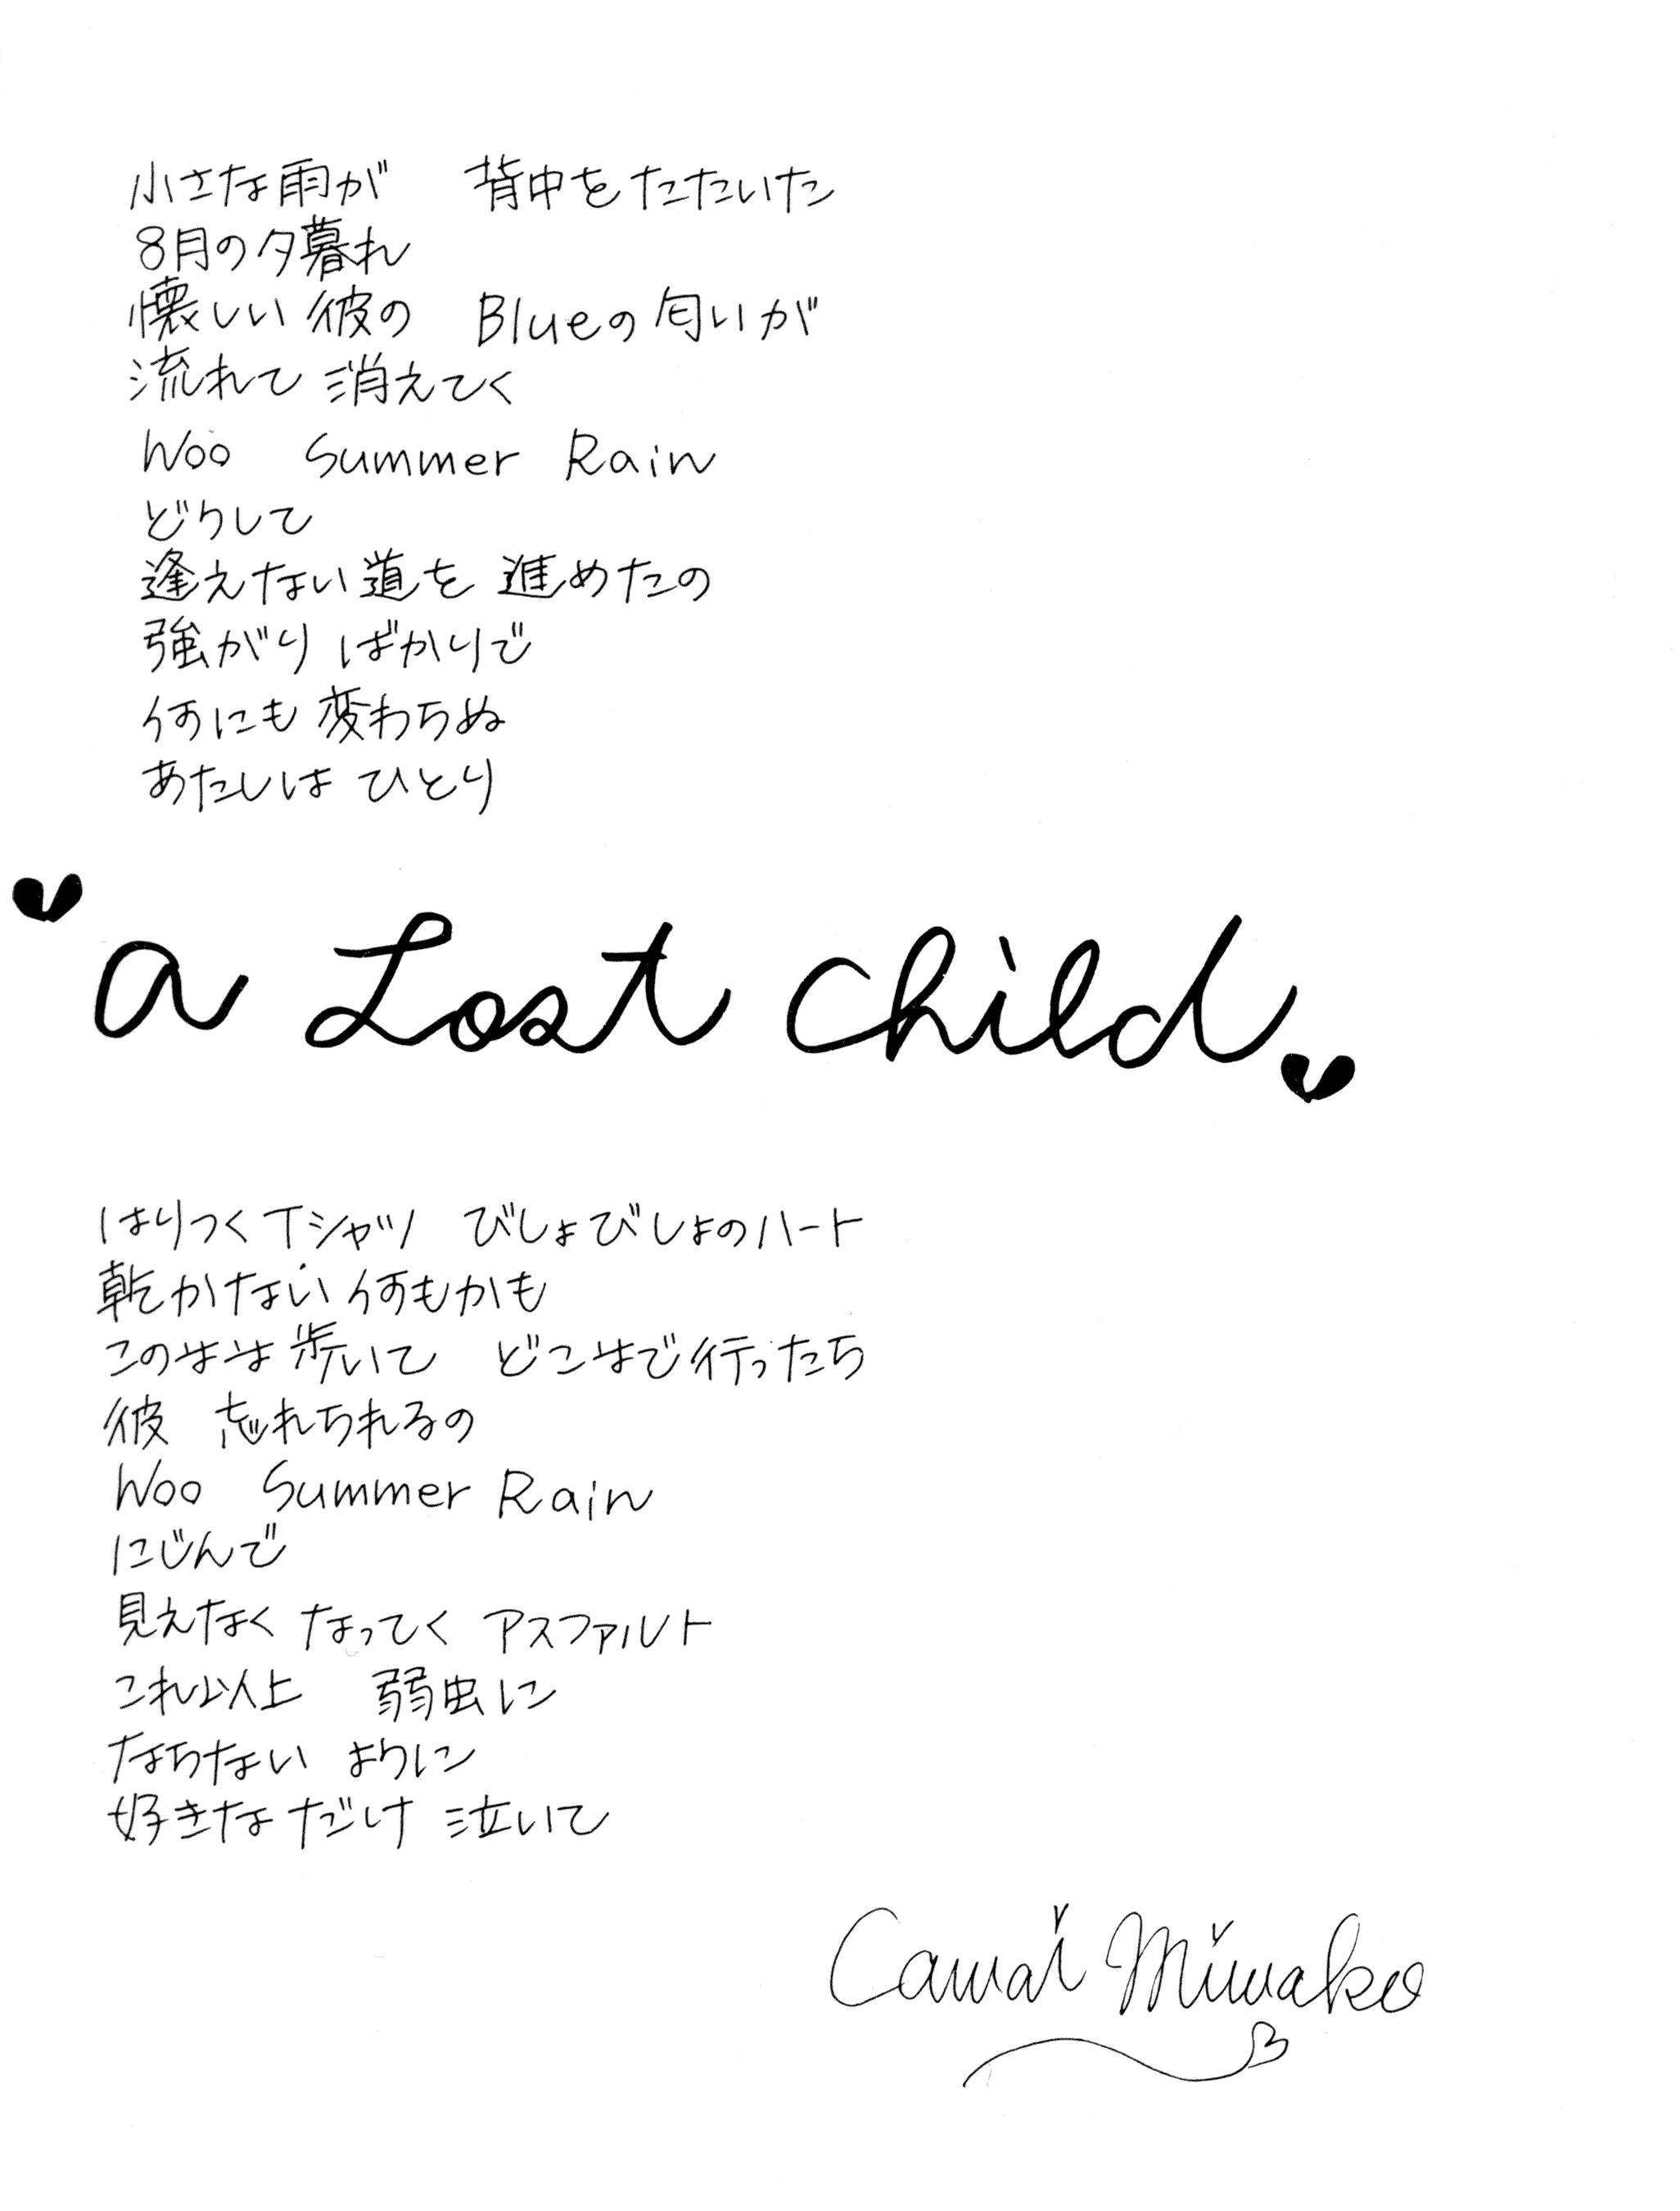 小さな雨が　背中をたたいた
8月の夕暮れ
懐しい彼の　Blueの匂いが
流れて 消えてく
Woo　Summer Rain
どうして
逢えない道を 進めたの
強がり ばかりで
何にも 変わらぬ
あたしは ひとり
"a Lost Child"
はりつくTシャツ　びしょびしょのハート
乾かない 何もかも
このまま歩いて　どこまで行ったら
彼　忘れられるの
Woo　Summer Rain
にじんで
見えなく なってく アスファルト
これ以上　弱虫に
ならない ように
好きなだけ 泣いて
Cawai Miwako